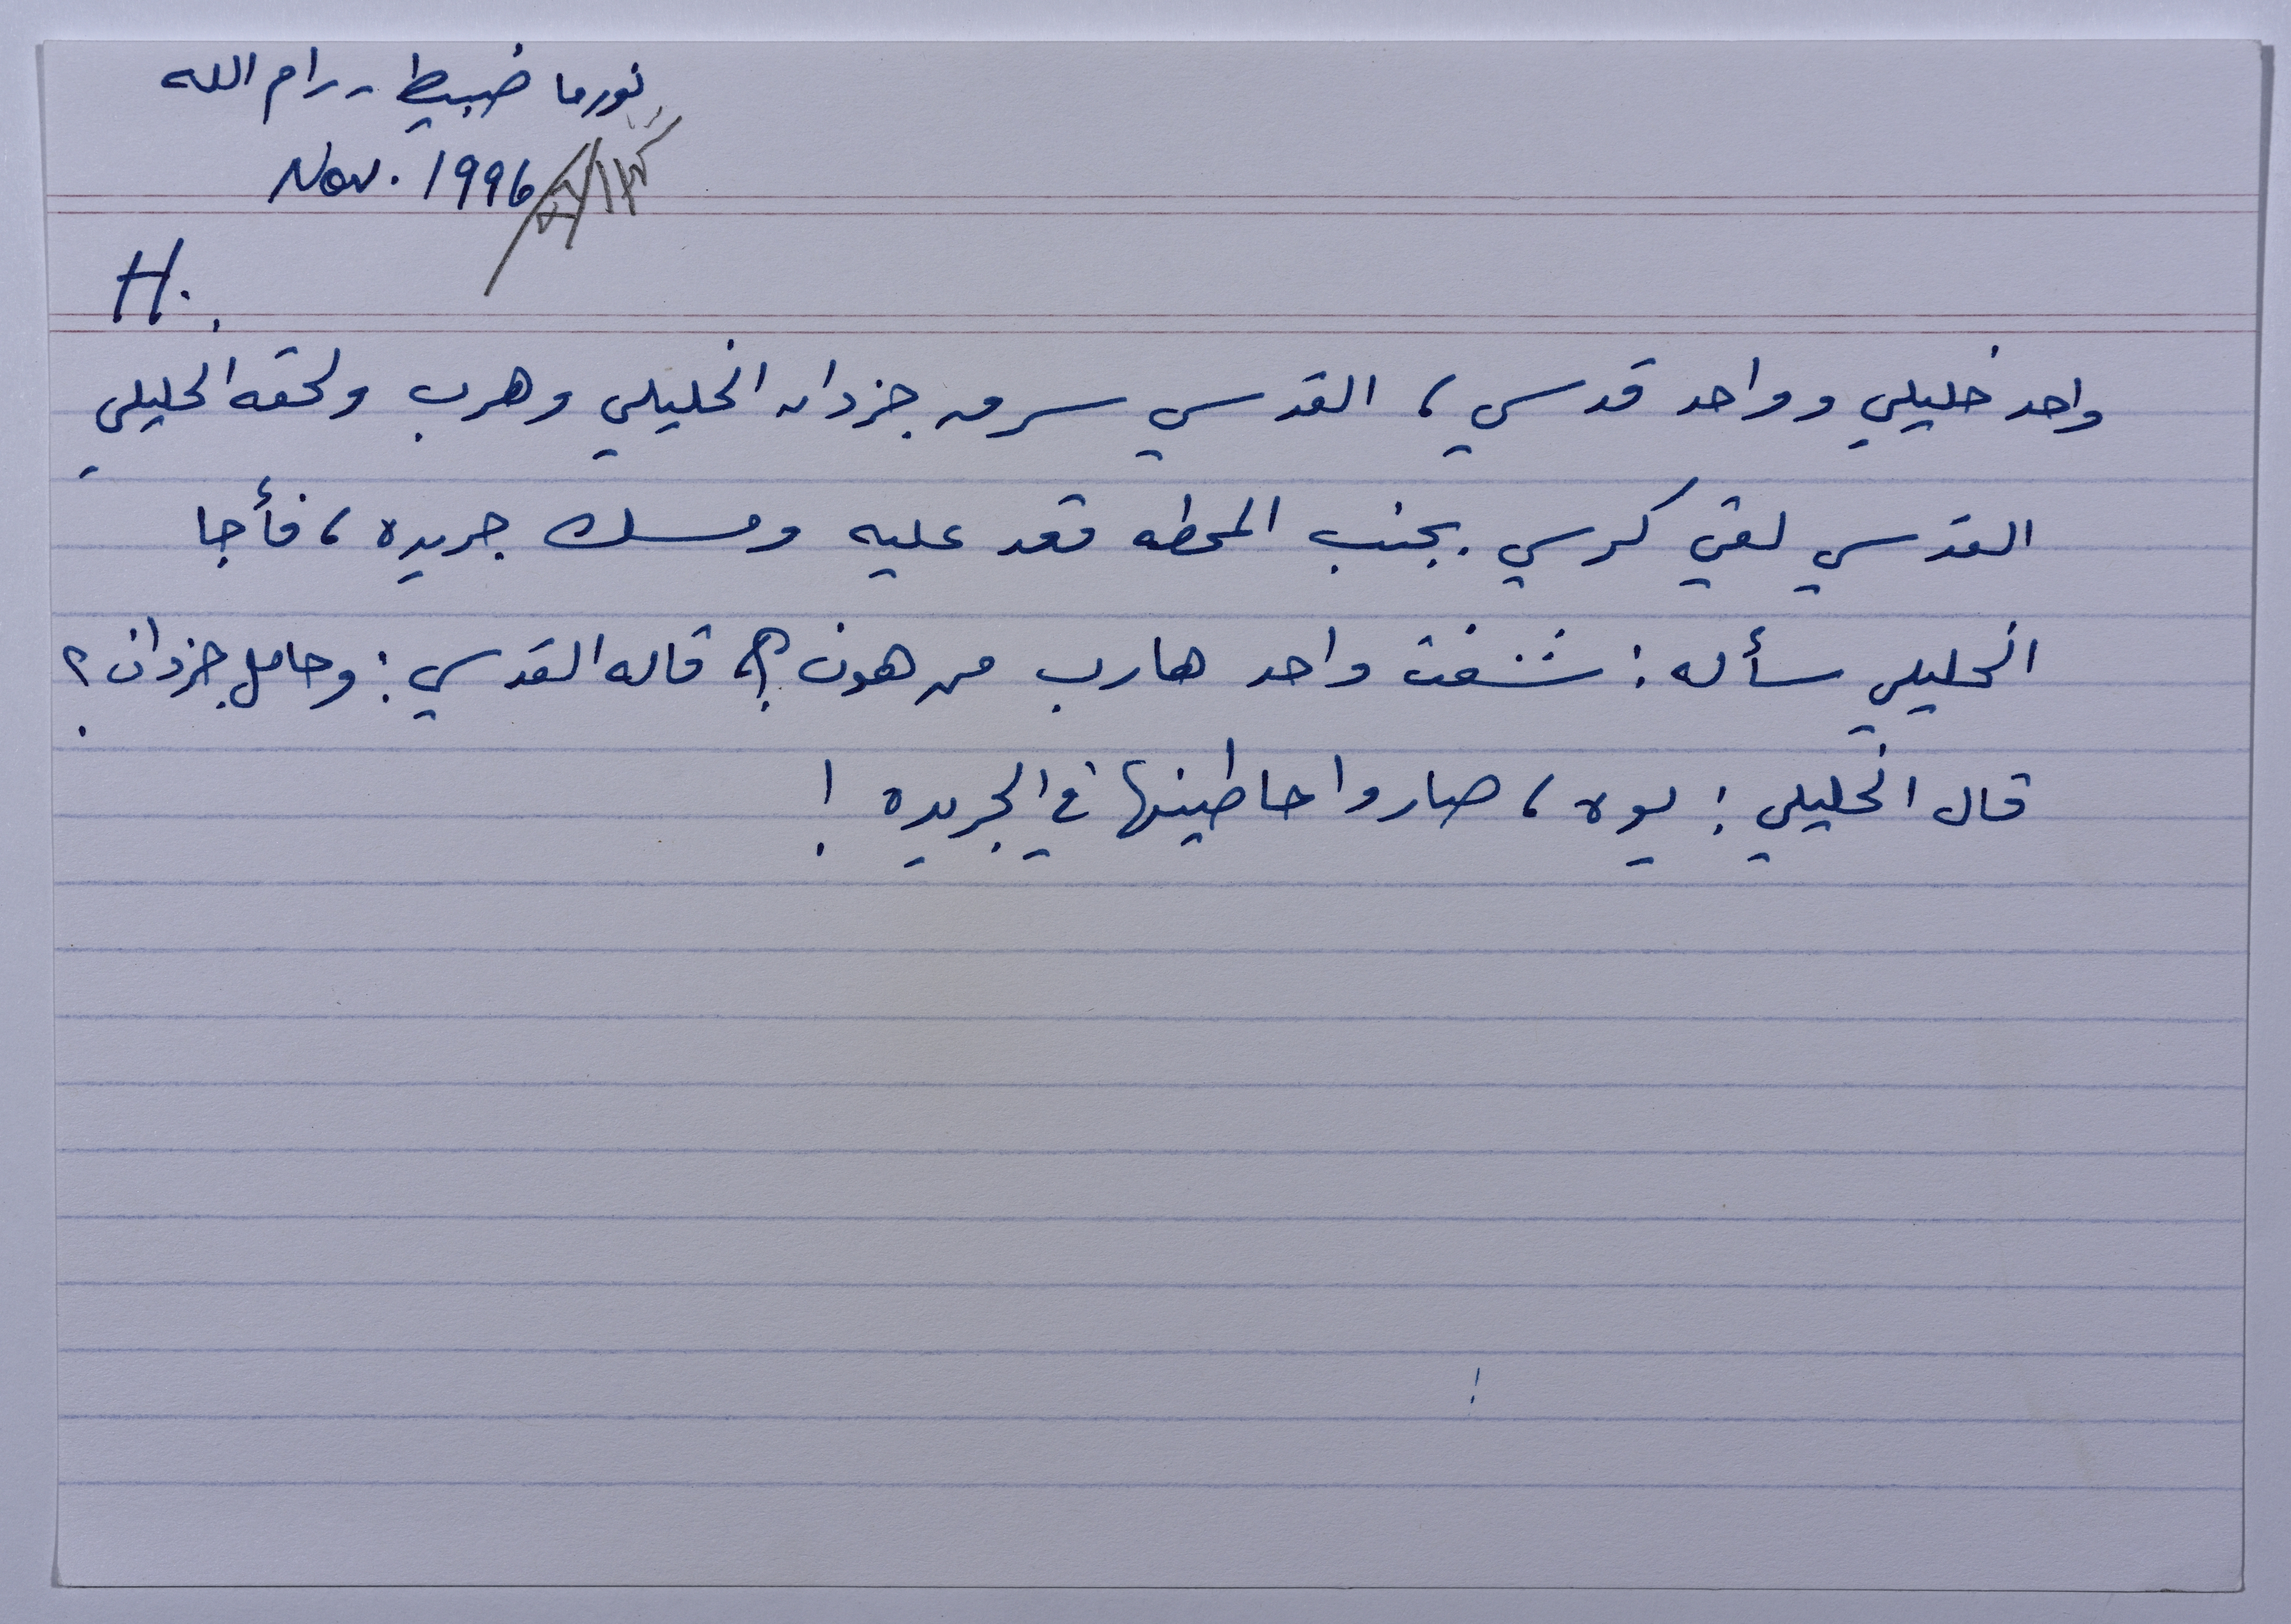 نورما ضبيط - رام الله
Nov. 1996
H.
واحد خليلي وواحد قدسي، القدسي سرق جزدان الخليلي وهرب ولحقه الخليلي
القدسي لقي كرسي بجنب المحطه قعد عليه ومسك جريده، فأجا
الخليلي سأله: شفت واحد هارب من هون؟، قاله القدسي: وحامل جزدان؟
قال الخليلي: يوه، صاروا حاطينها في الجريده!
!